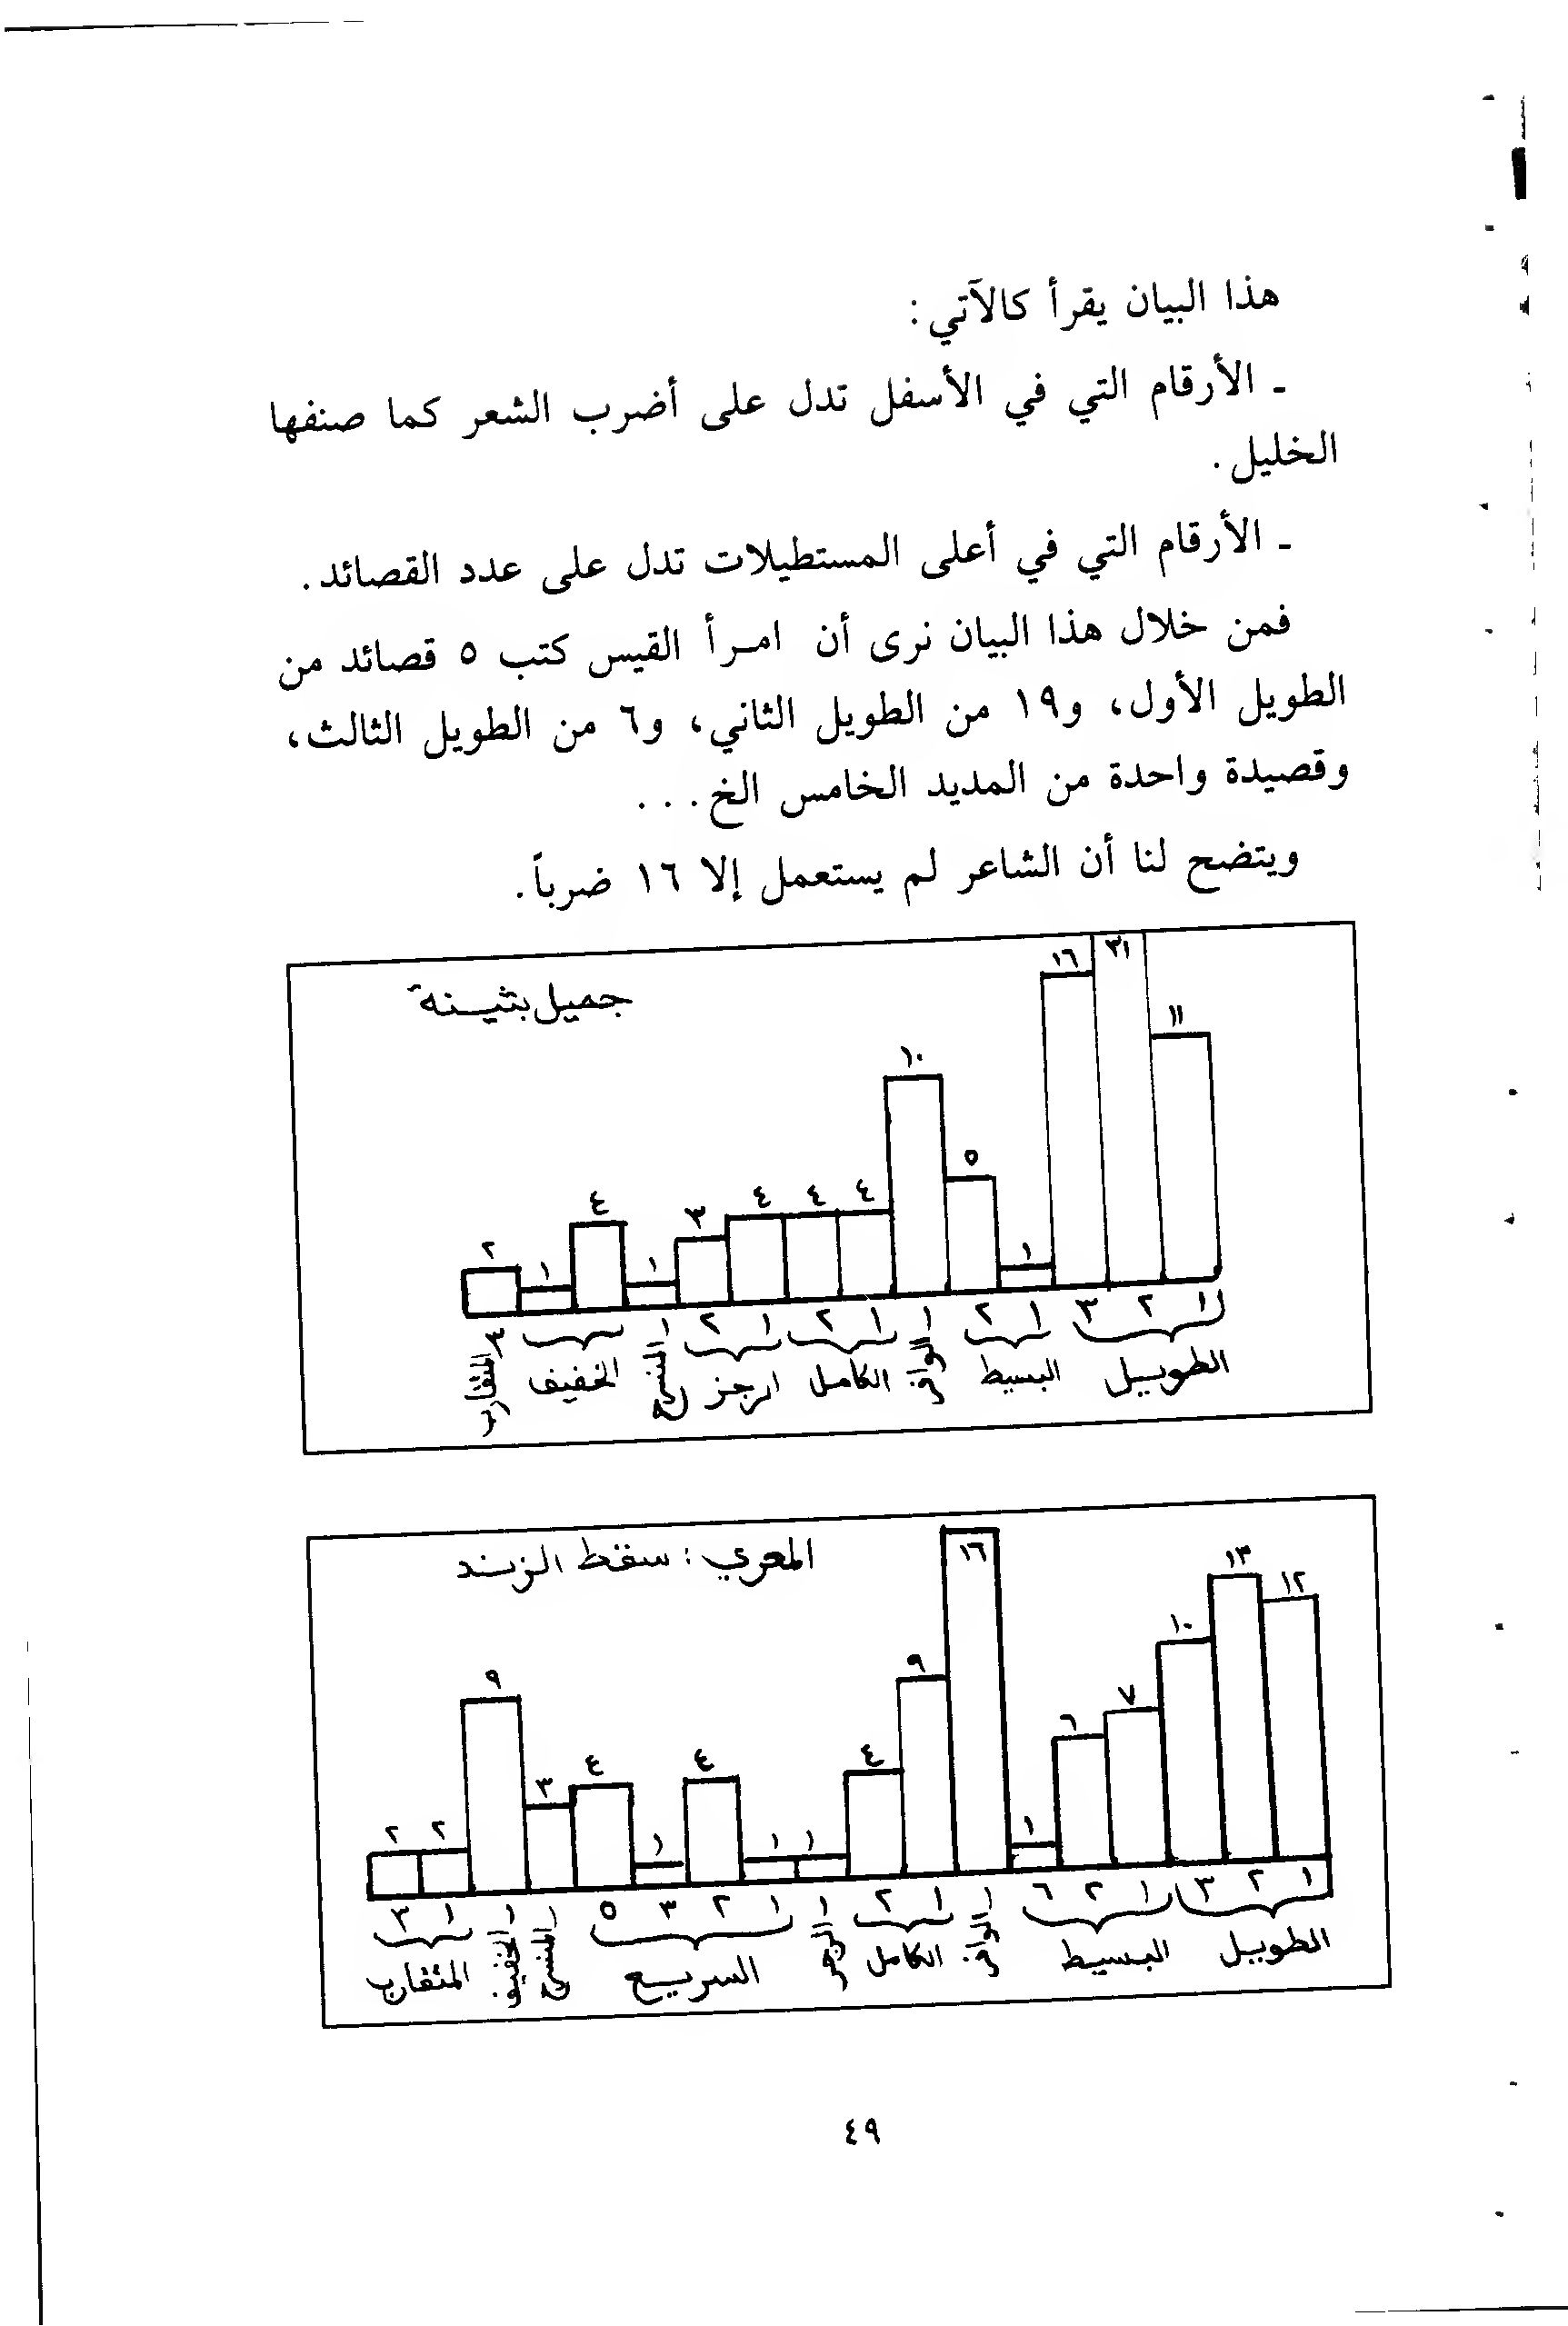 هذا البيان يقرأ كالآتي:
ـ الأرقام التي في الأسفل تدل على أضرب الشعر كما صنفها
الخليل.
ـ الأرقام التي في أعلى المستطيلات تدل على عدد القصائد.
فمن خلال هذا البيان نرى أن امـرأ القيس كتب ٥ قصائد من
الطويل الأول، و١٩ من الطويل الثاني، و٦ من الطويل الثالث،
وقصيدة واحدة من المديد الخامس الخ...
ويتضح لنا أن الشاعر لم يستعمل إلا ١٦ ضرباً.
جميل بثينة
١١ ٣١ ١٦ ١ ٥ ١٠ ٤ ٤ ٤ ٣ ١ ٤ ١ ٢
١ ٢ ٣ ١ ٢ ١ ١ ٢ ١ ٢ ١ ٣
الطويل البسيط الوافر الكامل الرجز المنسرح الخفيف المتقارب
المعري : سقط الزند
١٢ ١٣ ١٠ ٧ ٦ ١ ١٦ ٩ ٤ ١ ١ ٤ ١ ٤ ٣ ٩ ٢ ٢
١ ٢ ٣ ١ ٢ ٦ ١ ١ ٢ ١ ١ ٢ ٣ ٥ ١ ١ ١ ٣
الطويل البسيط الوافر الكامل الرجز السريع المنسرح الخفيف المتقارب
٤٩